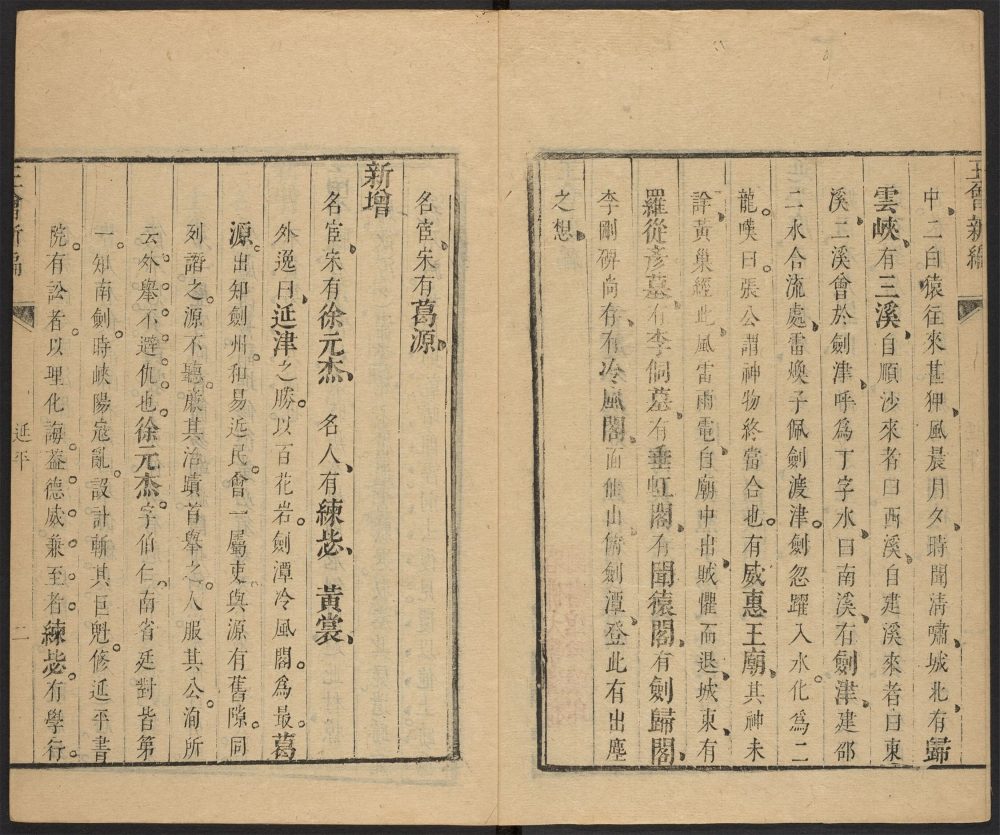 王會新編
中二白猿往來甚狎風晨月夕時聞清嘯城北有歸
雲峽有三溪自順沙來者曰西溪自建溪來者曰東
溪二溪會於劍津呼爲丁字水曰南溪有劍津建邵
二水合流處雷煥子佩劍渡津劍忽躍入水化爲二
龍嘆曰張公謂神物終當合也有威惠王廟其神未
詳黃巢經此風雷雨電自廟中出賊懼而退城東有
羅從彥墓有李侗墓有垂虹閣有聞猿閣有劍歸閣
李剛碑尚存有冷風閣面僊山俯劍潭登此有出塵
之想
名宦宋有葛源
新增
名宦宋有徐元杰 名人有練毖 黃裳
外逸曰延津之勝以百花岩劍潭冷風閣爲最葛
源出知劍州和易近民會一屬吏與源有舊隙同
列譖之源不聽廉其治蹟首舉之人服其公洵所
云外舉不避仇也徐元杰字伯仁南省廷對皆第
一知南劍時峽陽寇亂設計斬其巨魁修延平書
院有訟者以理化誨益德威兼至者練毖有學行
王會新編
延平
二